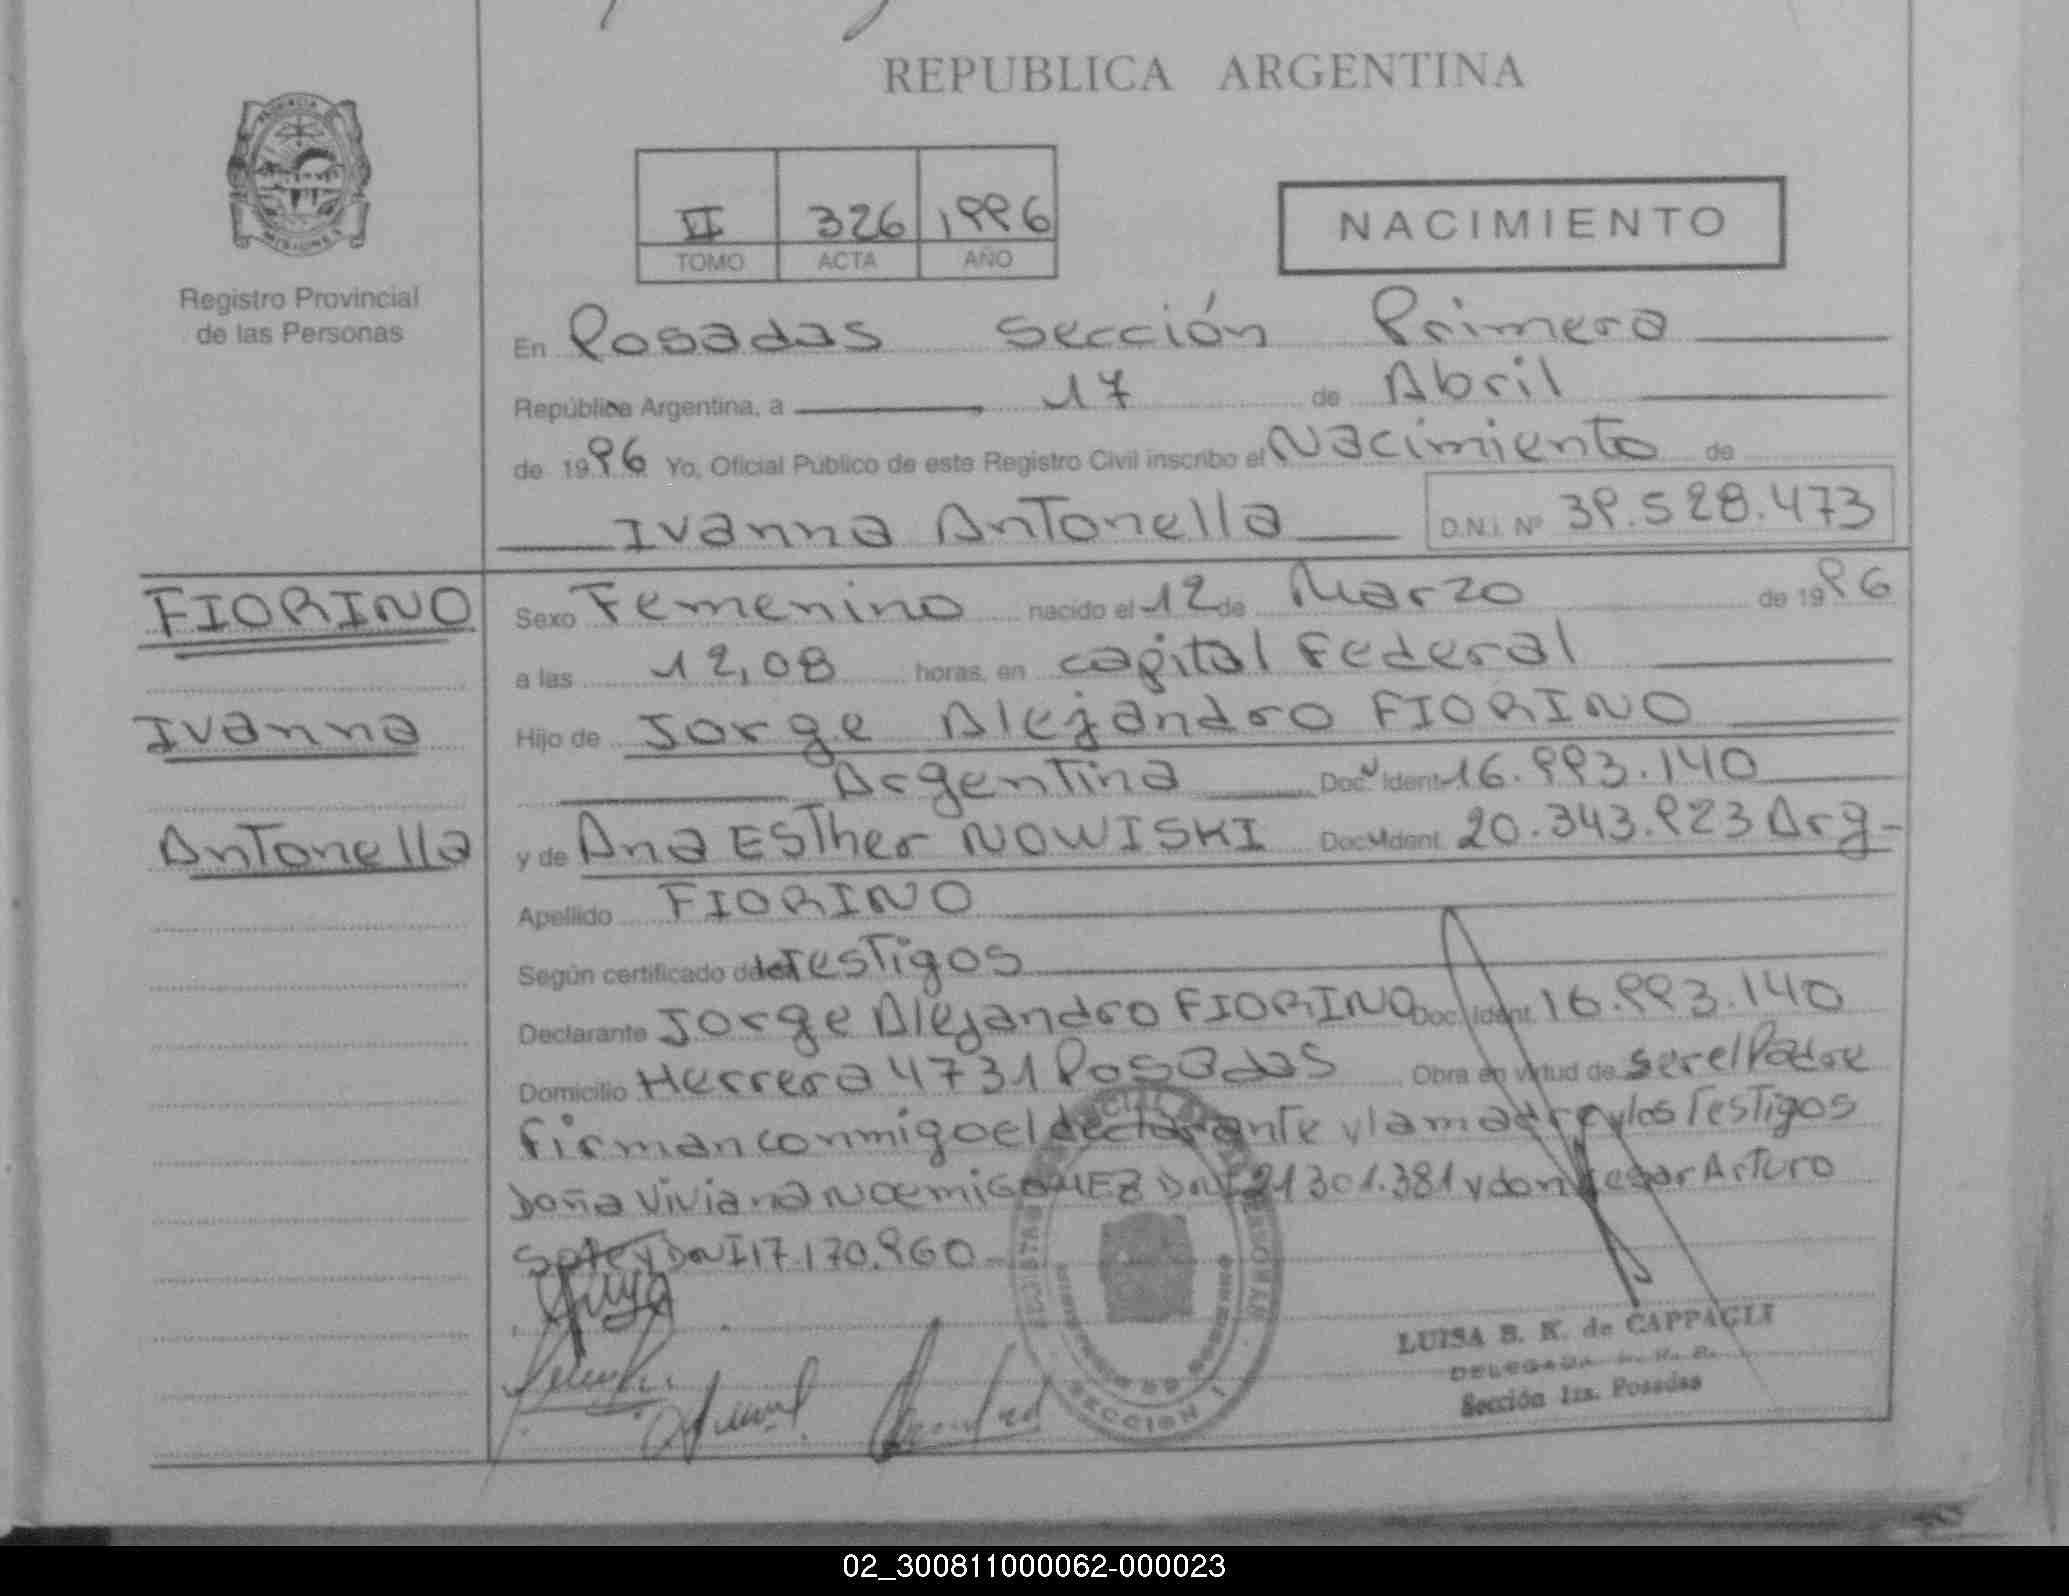 REPUBLICA ARGENTINA
PROVINCIA
MISIONES
Registro Provincial
de las Personas
II 326 1996
TOMO ACTA AÑO
NACIMIENTO
En Posadas Sección Primera
República Argentina, a 17 de Abril
de 1996 Yo, Oficial Público de este Registro Civil inscribo el Nacimiento de
Ivanna Antonella D.N.I. Nº 39.528.473
FIORINO
Ivanna
Antonella
Sexo Femenino nacido el 12 de Marzo de 1996
a las 12,08 horas, en capital Federal
Hijo de Jorge Alejandro FIORINO
Argentina Doc. Ident 16.993.140
y de Ana Esther NOWISKI Doc. Ident. 20.343.923 Arg-
Apellido FIORINO
Según certificado de testigos
Declarante Jorge Alejandro FIORINO Doc. Ident. 16.993.140
Domicilio Herrera 4731 Posadas Obra en virtud de ser el Padre
firman conmigo el declarante y la madre y los Testigos
Doña Viviana Noemi GOMEZ DNI 21301.381 y don Cesar Arturo
DNI 17.170.960-
SECCION 1
LUISA B. K. de CAPPAGLI
DELEGADA
Sección 1ra. Posadas
02_300811000062-000023